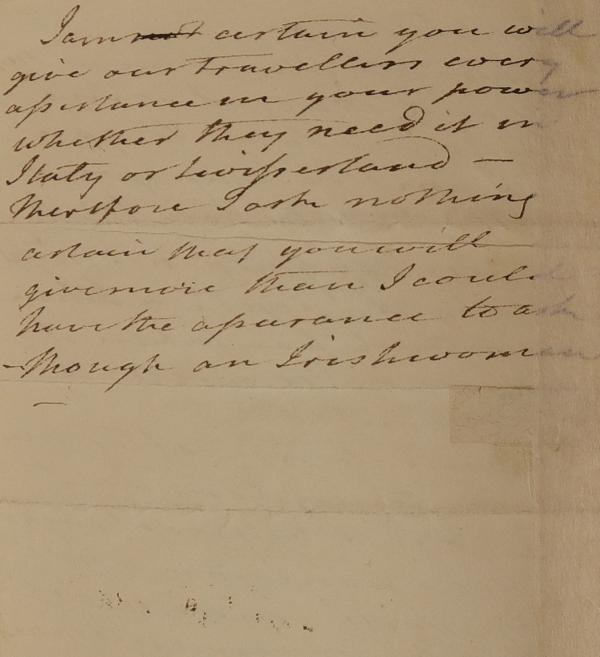 I am certain you will
give our travellers every
assistance in your power
whether they need it in
Italy or Swisserland —
therefore I ask nothing
certain that you will
give more than I could
have the assurance to ask
– though an Irishwoman
—